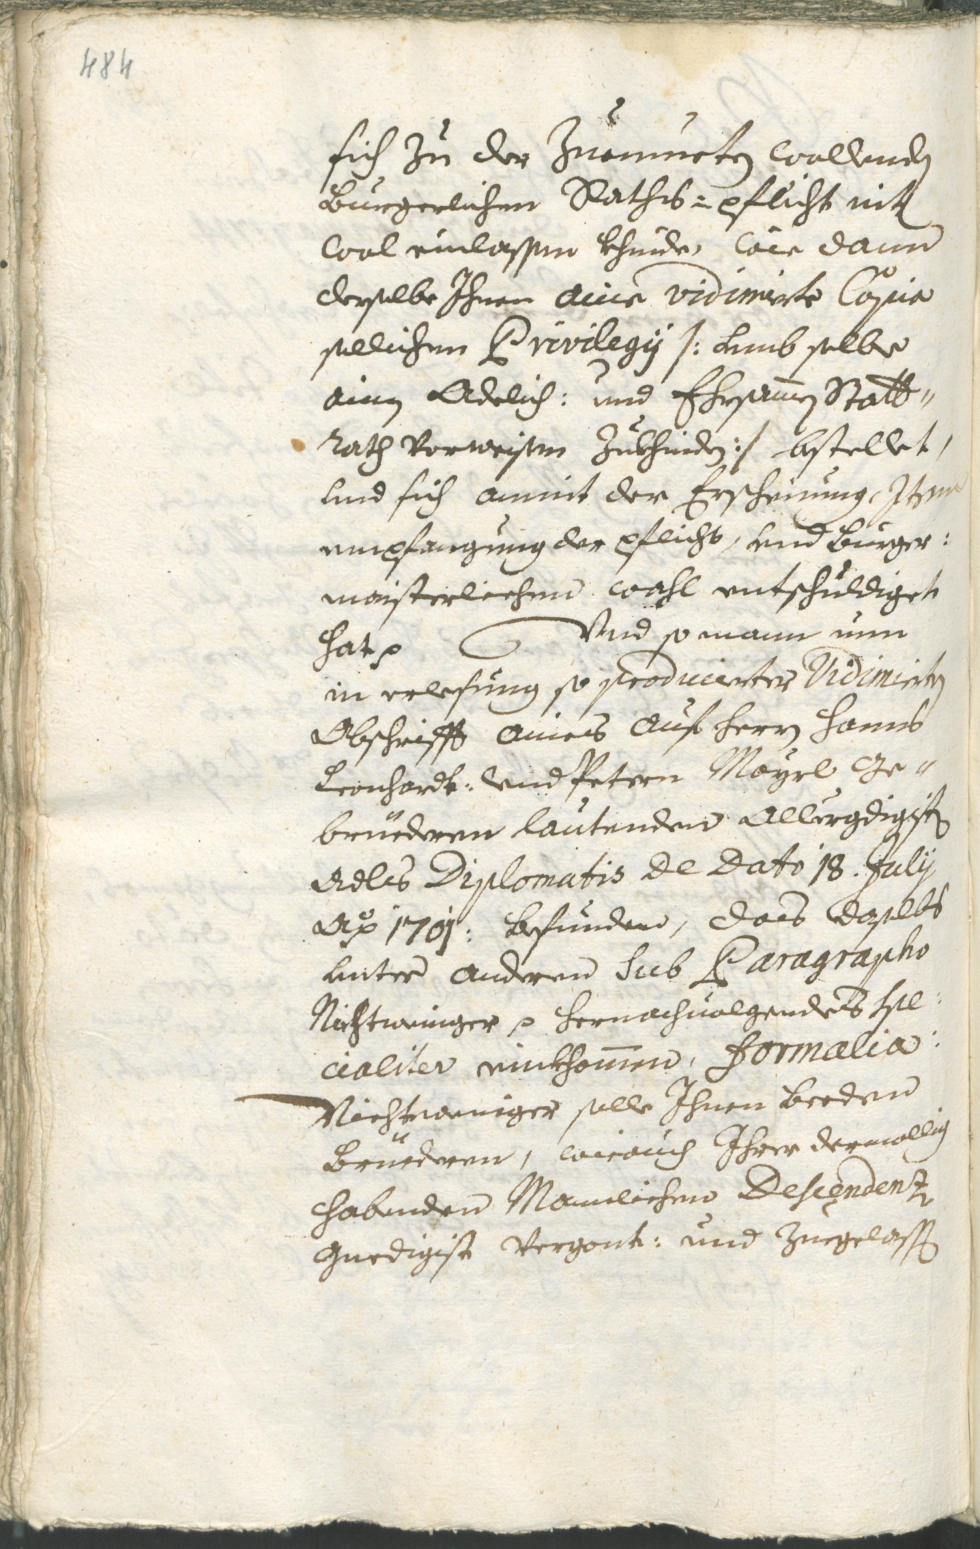 484
sich zu der Zuemueten wollenden
Burgerlichen Raths=pflicht nit
wol einlassen khünde, wie dann
derselbe Ihnen aine vidimierte Copia
sollichen Privilegij /: umb selbe
ainen Adelich: und Ehrsamen Statt"
rath vorweisen zukhinden :/ bstellet,
und sich amnit der Erscheinung, Item
empfangung der pflicht, und Burger:
maisterlichen wahl entschuldiget
hat Und so mann nun
in erlesung so producierter Vidimierten
Abschrifft aines auf Herrn Hanns
Leonhardt: und Petern Mayrl Ge"
brüederen lautenden Allergdigisten
Adls Diplomatis de dato 18. July
Ao 1701: befunden, das daselbs
unter anderen sub Paragrapho
Nichtweniger hernachvolgendes spe:
cialiter einkhomen, formalia:
Nichtweniger solle Ihnen beeden
Brüederen, wieauch Ihrer dermallig
habenden Manlichen Descendenz
Gnedigist vergont: und zuegelassen